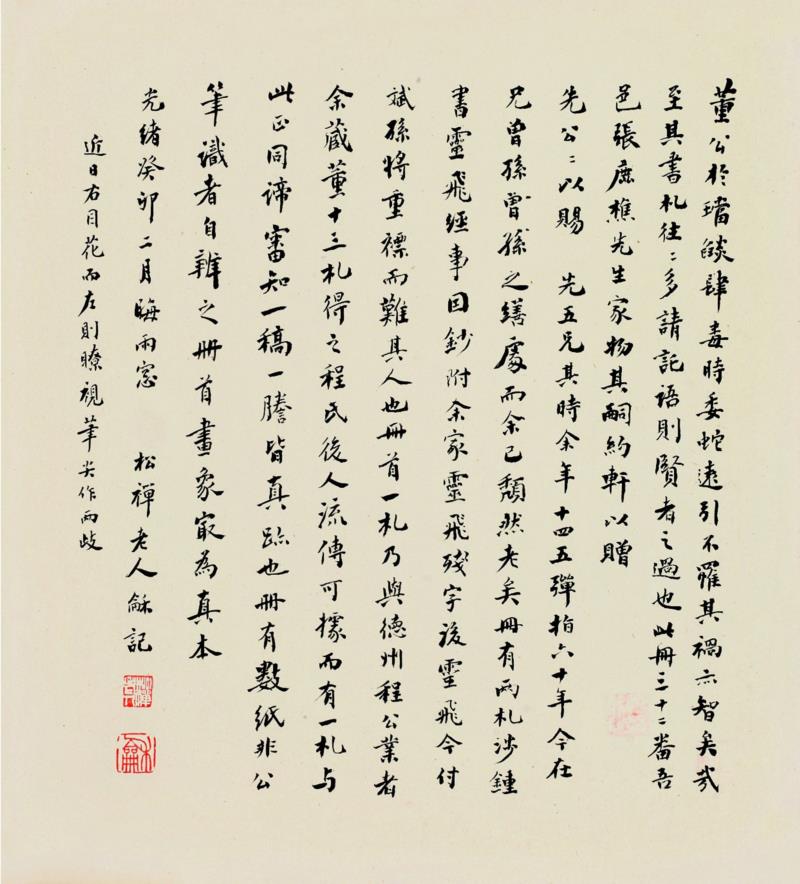 董公於璫燄肆毒時委蛇遠引不罹其禍亦智矣哉
至其書札往〻多請託語則賢者之過也此冊三十二番吾
邑張鹿樵先生家物其嗣約軒以贈
先公〻以賜 先五兄其時余年十四五彈指六十年今在
兄曾孫曾孫之繕處而余已頹然老矣冊有兩札涉鍾
書靈飛經事因鈔附余家靈飛殘字後靈飛今付
斌孫將重褾而難其人也冊首一札乃與德州程公業者
余藏董十三札得之程氏後人流傳可據而有一札与
此正同諦審知一稿一謄皆真跡也冊有數紙非公
筆識者自辨之冊首畫象冣為真本
光緒癸卯二月晦雨窓 松禪老人龢記
近日右目花而左則瞭視筆尖作兩歧
松禪
龢